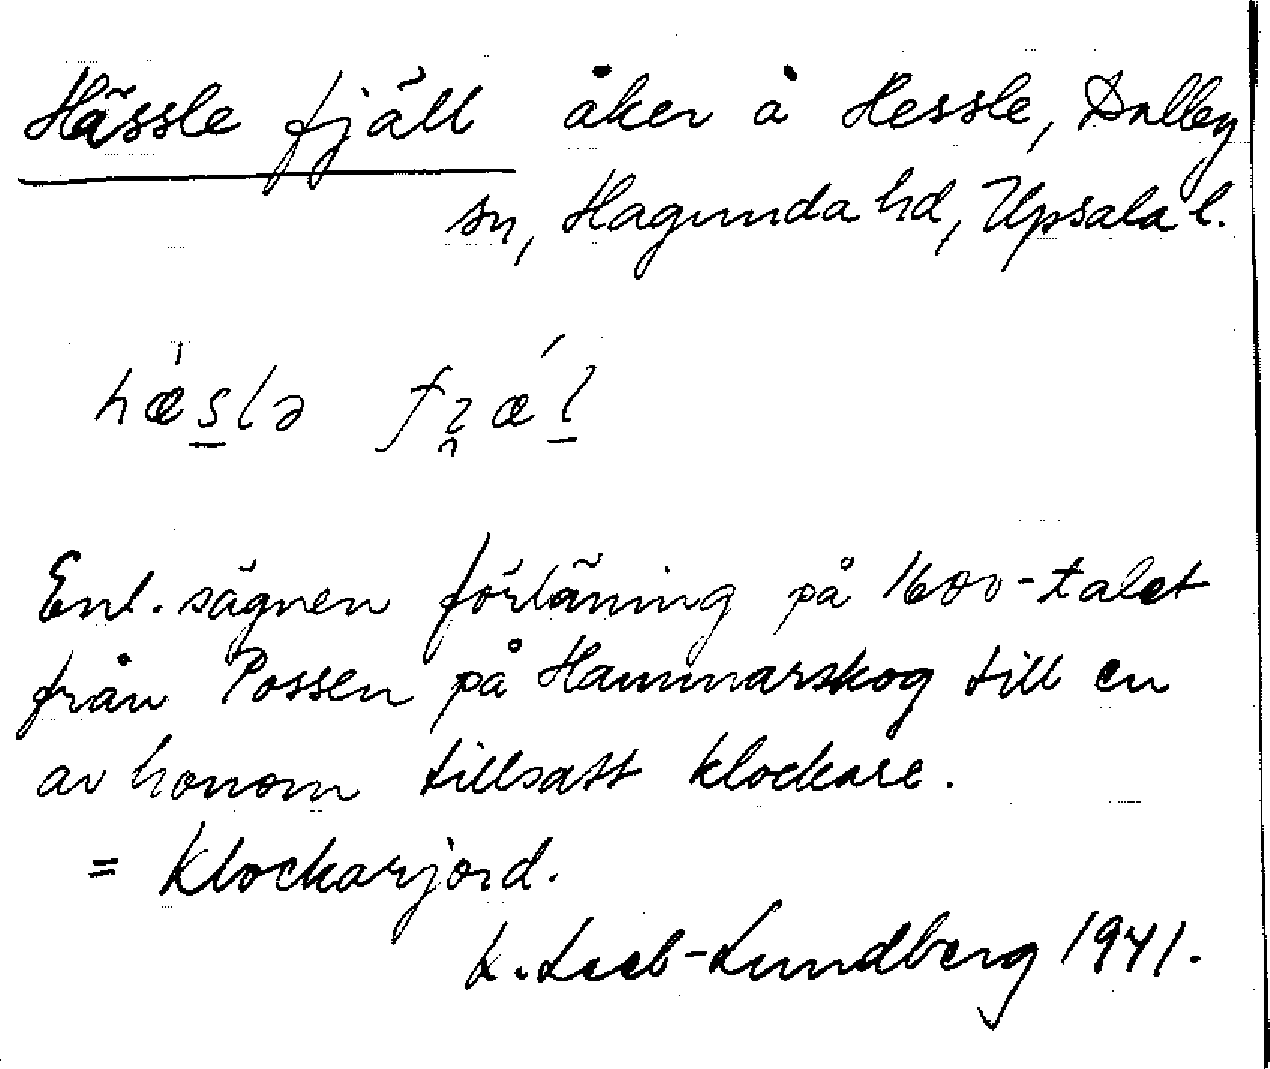 Hässle fjäll åker å Hessle, Dalby
sn, Hagunda hd, Upsala l.
hæslə fɀæ´l
Enl. sägnen förläning på 1600-talet
från Possen på Hammarskog till en
av honom tillsatt klockare.
= Klockarjord.
L. Leeb-Lundberg 1941.